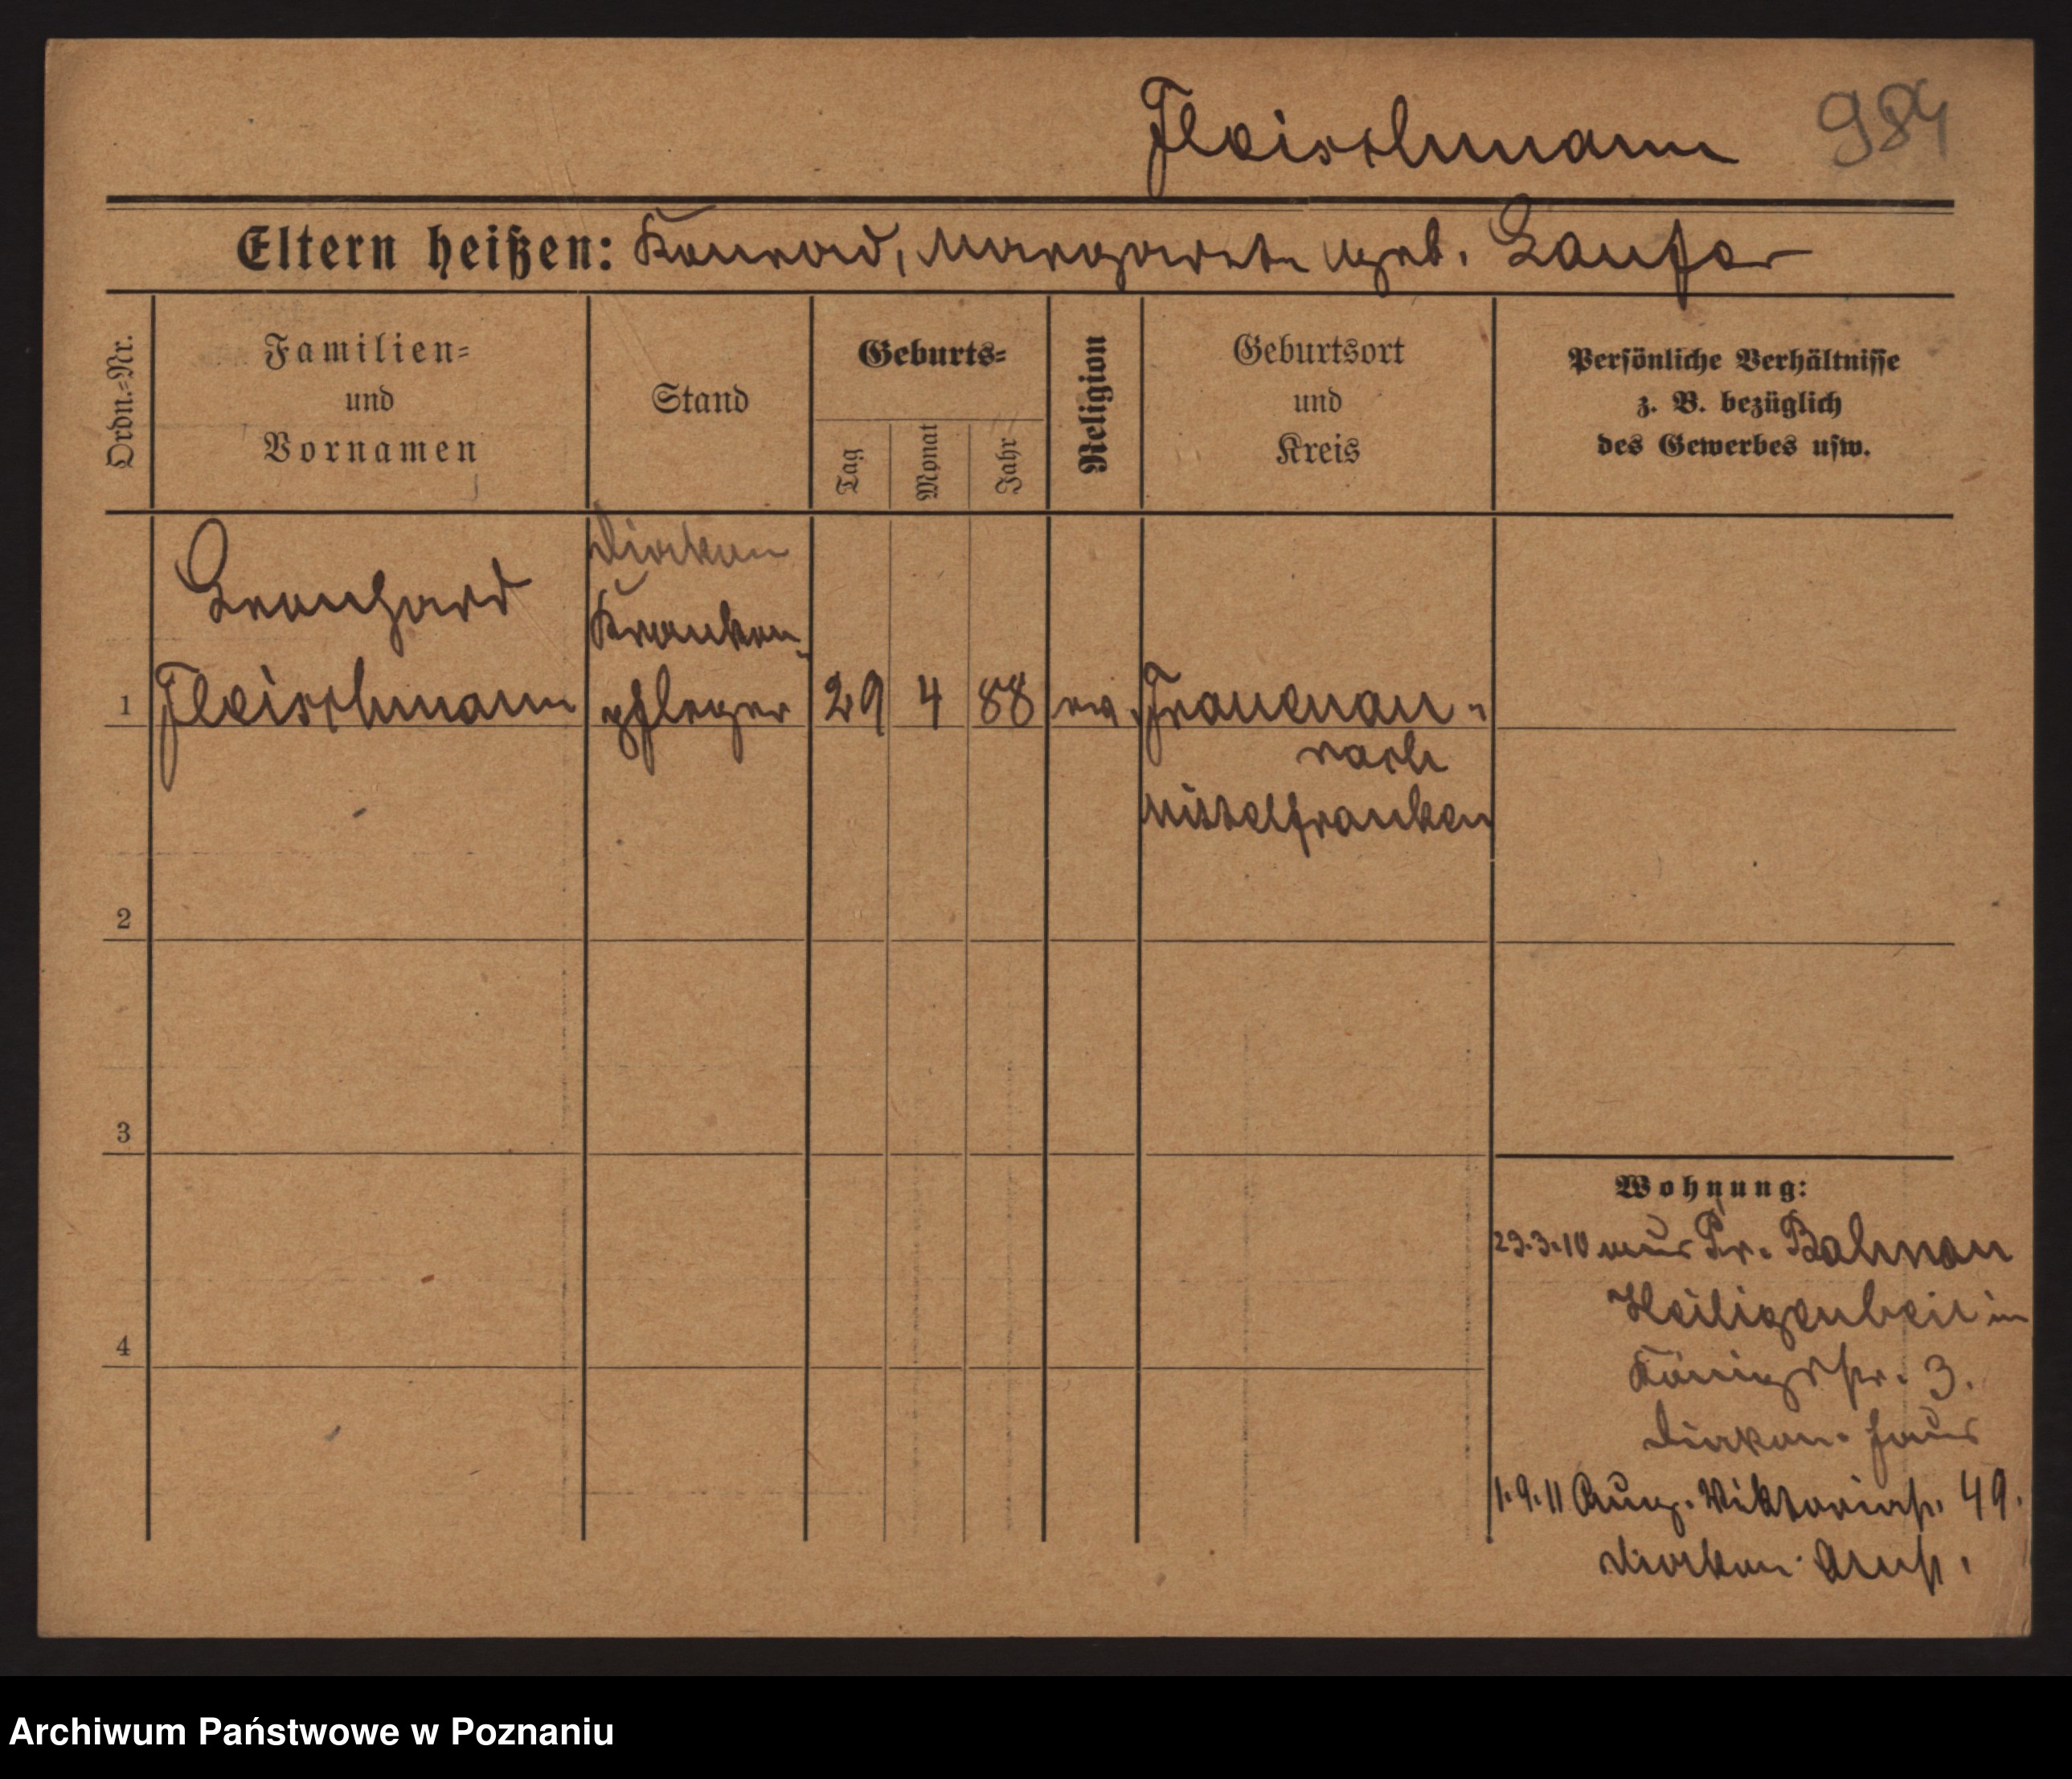 Fleischmann 984
Eltern heißen: Konrad, Margarete geb. Laufer
Ordn.-Nr.
Familien-
und
Vornamen
Stand
Geburts-
Tag
Monat
Jahr
Religion
Geburtsort
und
Kreis
Persönliche Verhältnisse
z. B. bezüglich
des Gewerbes usw.
Diakon
Leonhard
Kranken-
1 Fleischmann pfleger 29 4 88 ev. Frauenau-
rach
Mittelfranken
2
3
4
Wohnung:
23.3.10 aus Pr. Bahnau
Heiligenbeil in
Königstr. 3.
Diakon. Haus
1.9.11 Aug. Viktoriastr. 49.
Diakon. Anst.
Archiwum Państwowe w Poznaniu